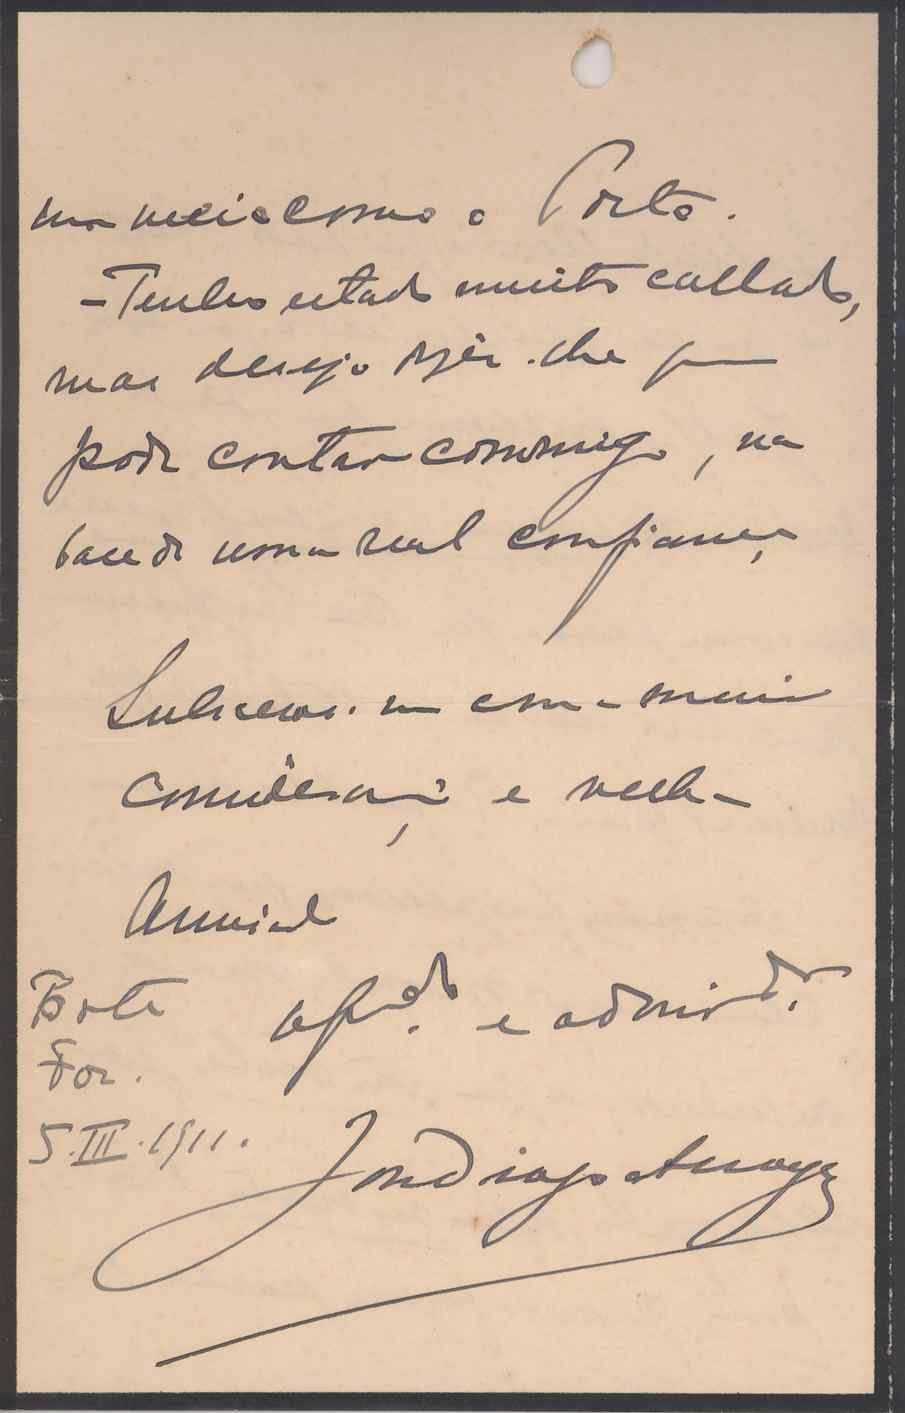 num meio como o Porto.
- Tenho estado muito callado,
mas desejo dizer-lhe que
pode contar commigo, na
base de uma real confiança
Subscrevo-me com a maior
consideração e velha
Amizade
Porto
Foz.
5.III.1911.
e admirdor.